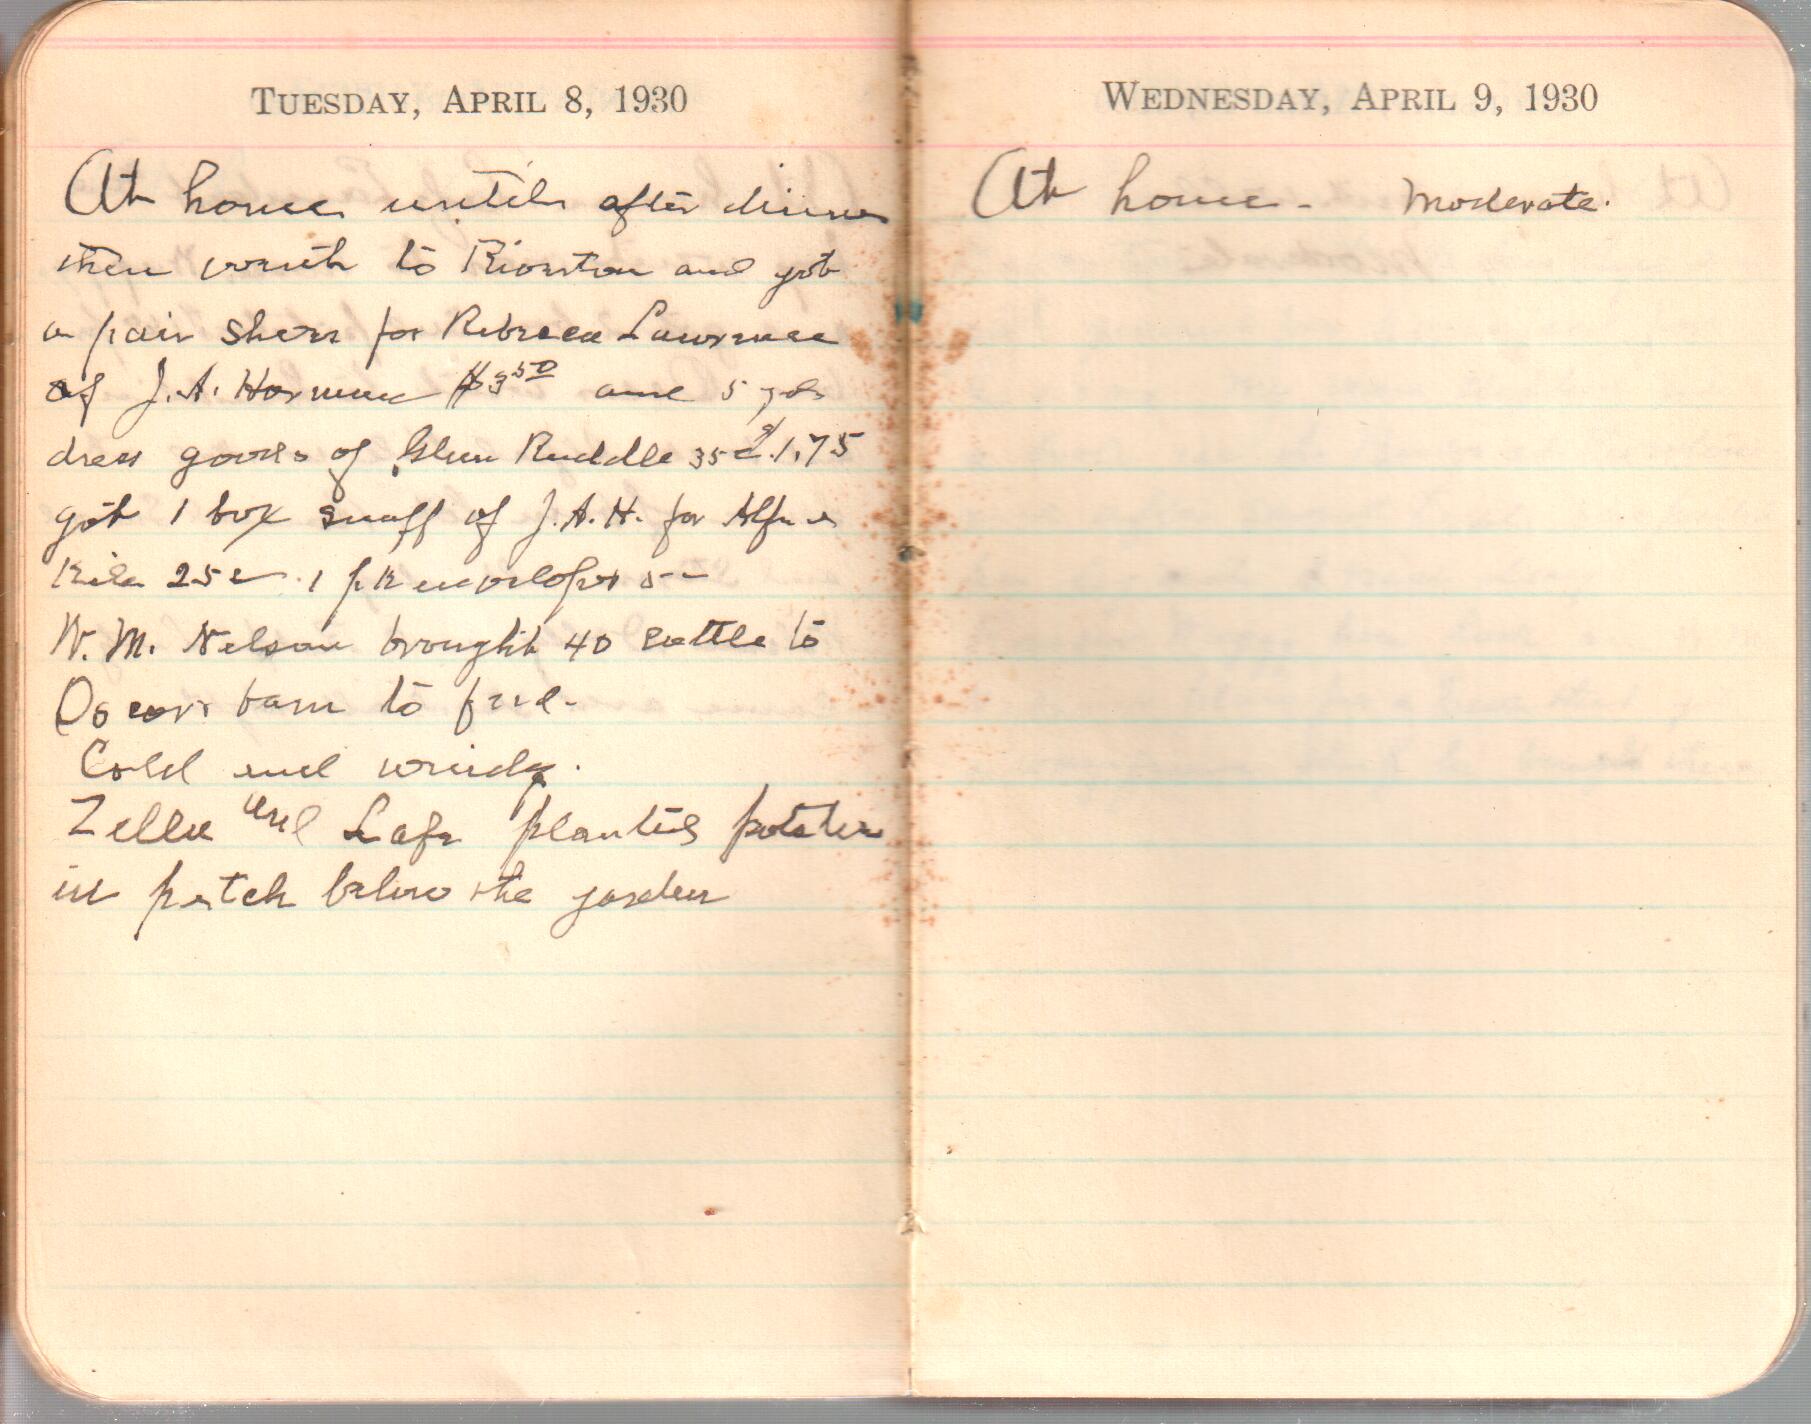 TUESDAY, APRIL 8, 1930
At home until after dinner
then went to Riverton and got
a pair shoes for Rebecca Lawrence
of J.A. Harman $3 50 and 5 yds
dress goods of Glen Ruddle 35¢ 1.75
got 1 box snuff of J.A.H. for
Kile 25c. 1 pk envelopes 5c
W. M. Nelson brought 40 cattle to
Oscars barn to feed.
Cold and windy.
Zella and Lafe planted potatoes
in patch below the garden
WEDNESDAY, APRIL 9, 1930
At home. Moderate.